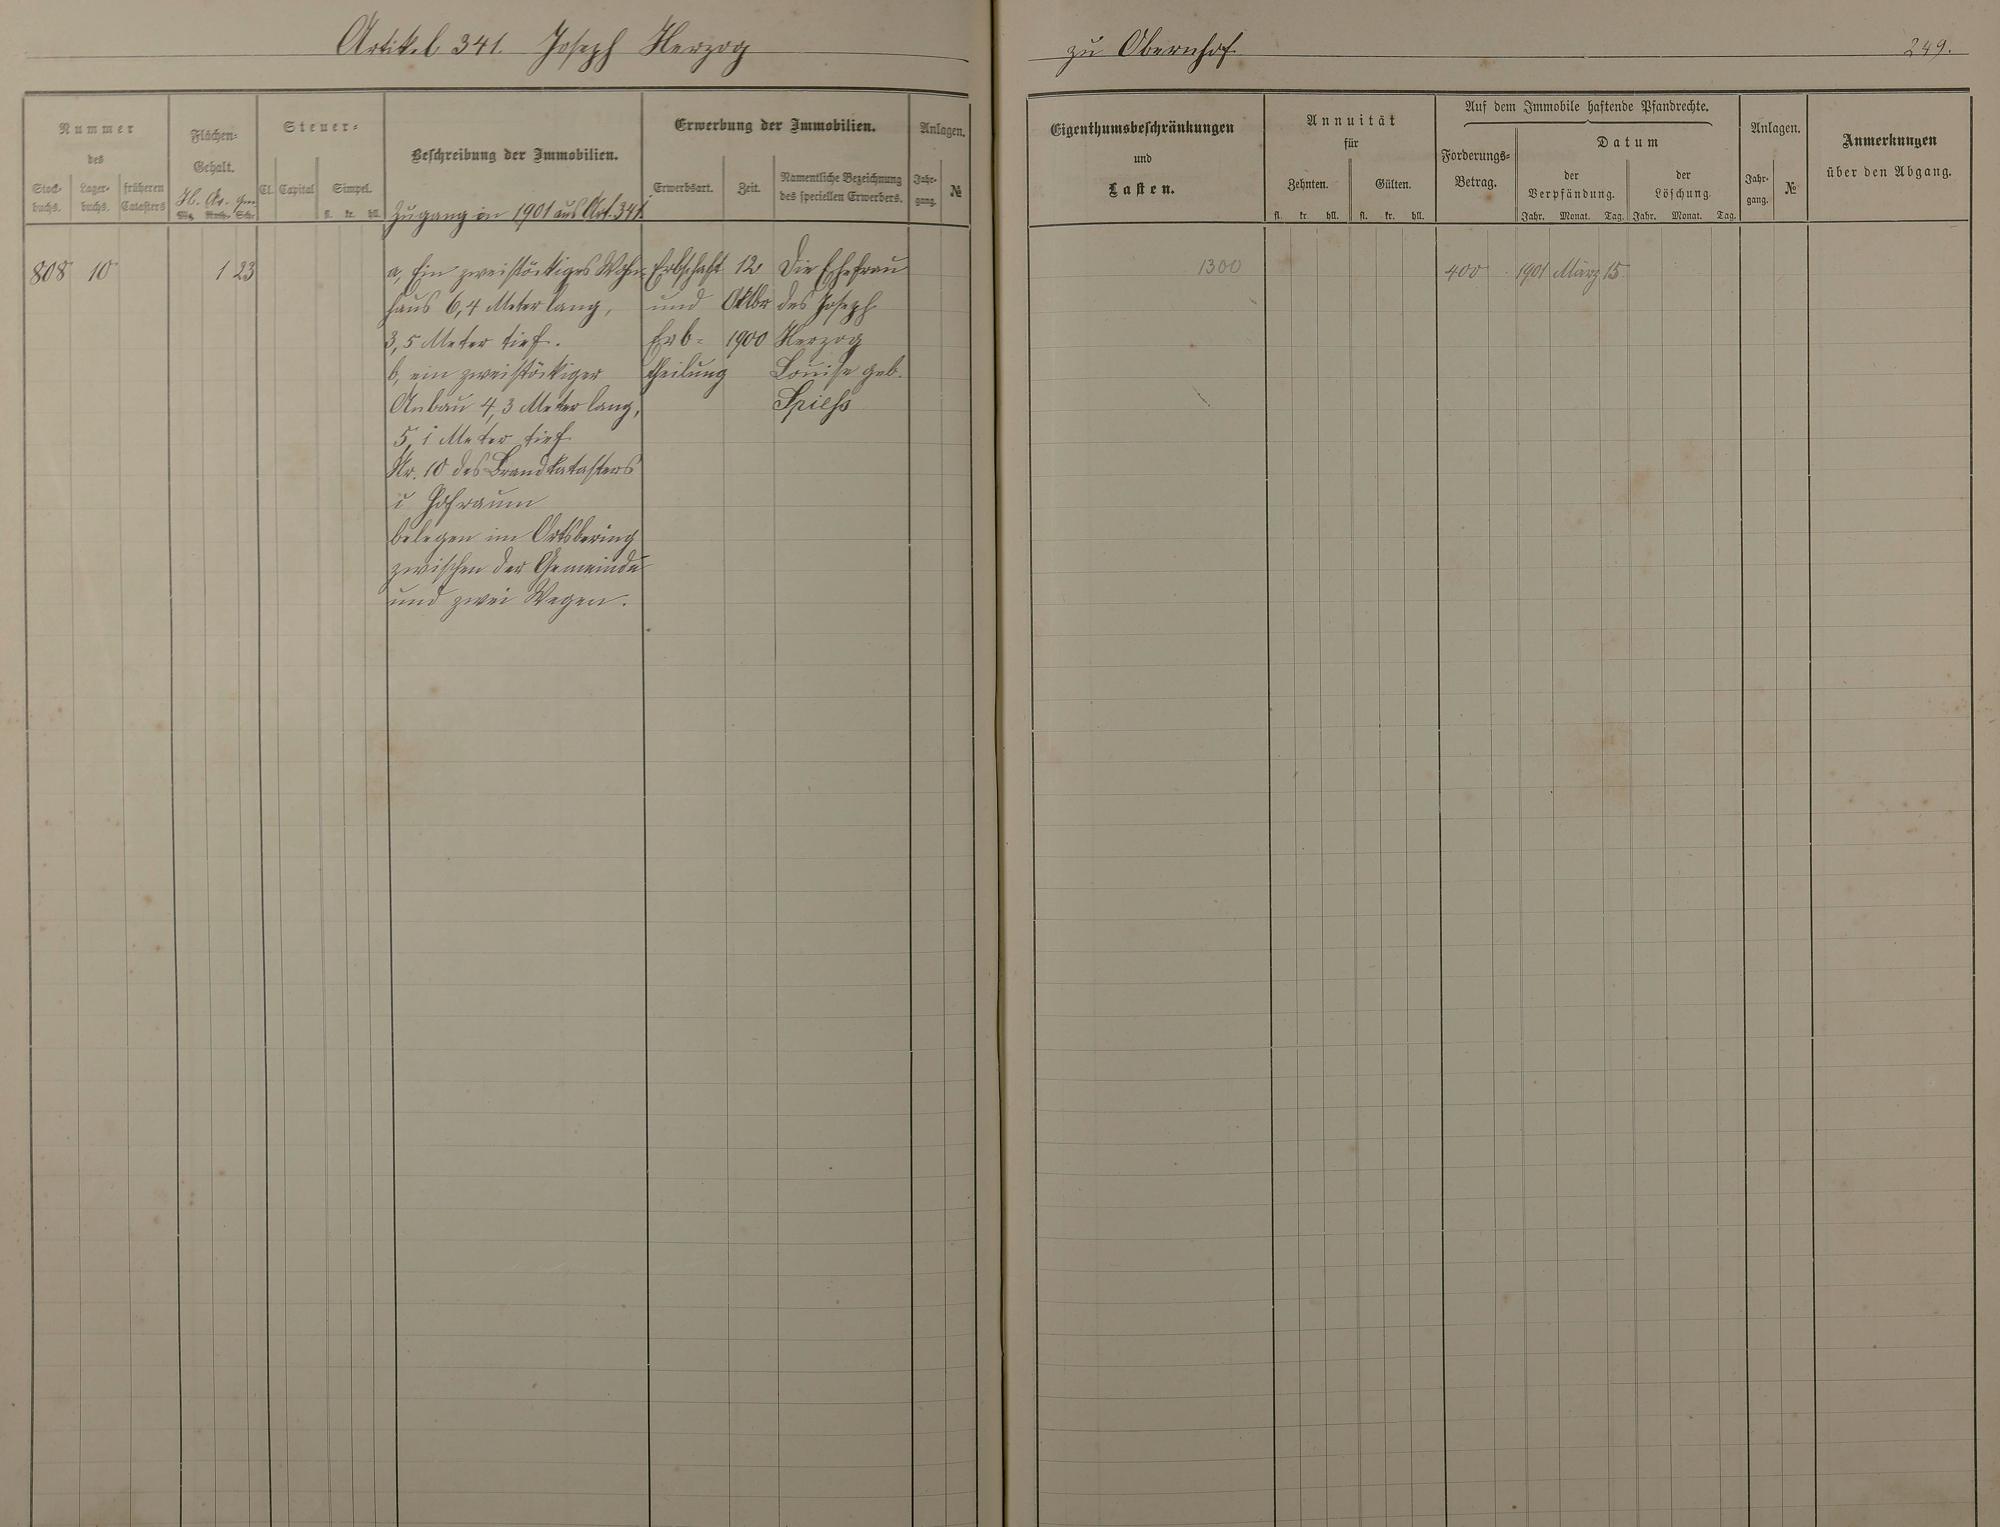 Artikel 341. Joseph Herzog
Nummer
des
Stock-
buchs.
Lager-
buchs.
früheren
Catasters
Flächen-
Gehalt.
H. Ar. Qm
Mg. Rth. Sch.
Steuer-
Cl.
Capital
Simpel.
fl. kr. hll.
Beschreibung der Immobilien.
Zugang in 1901 aus Art. 341
Erwerbung der Immobilien.
Erwerbsart.
Zeit.
Namentliche Bezeichnung
des speciellen Erwerbers.
Anlagen.
Jahr-
gang.
№
808 10 1 23
a, Ein zweistöckiges Wohn-
haus 6,4 Meter lang,
3,5 Meter tief.
b, ein zweistöckiger
Anbau 4,3 Meter lang,
5,1 Meter tief
Nr. 10 des Brandkatasters
u Hofraum
belegen im Ortsbering
zwischen der Gemeinde
und zwei Wegen.
Erbschaft
und
Erb-
theilung
12
Oktbr
1900
Die Ehefrau
des Joseph
Herzog
Louise geb.
Spiess
zu Obernhof
249.
Eigenthumsbeschränkungen
und
Lasten.
Annuität
für
Zehnten.
Gülten.
fl. kr. hll. fl. kr. hll.
Auf dem Immobile haftende Pfandrechte.
Forderungs-
Betrag.
Datum
der
Verpfändung.
Jahr. Monat. Tag.
der
Löschung
Jahr. Monat. Tag.
Anlagen.
Jahr-
gang.
№
Anmerkungen
über den Abgang.
1300
400 1901 März 15